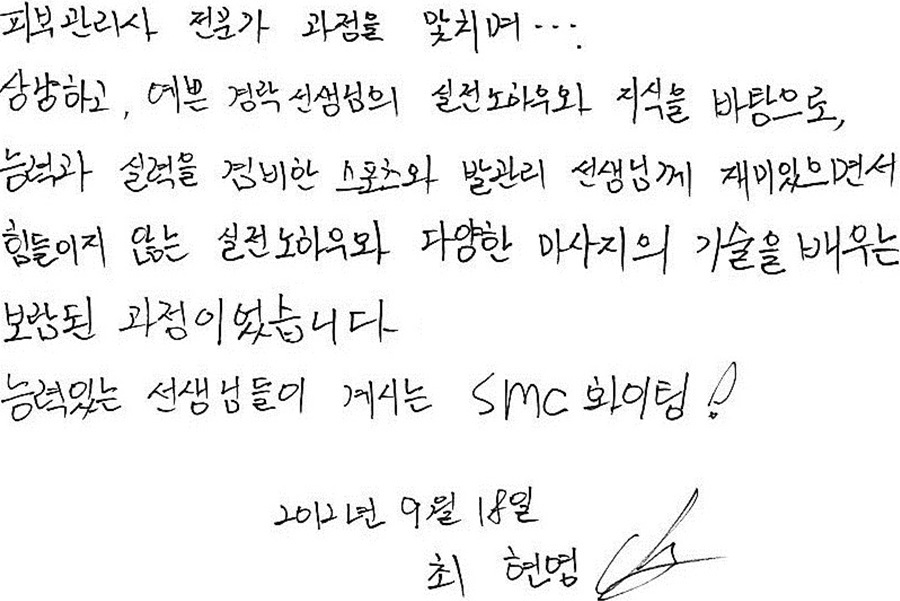 피부관리사 전문가 과정을 맞치며….
상냥하고, 예쁜 경락선생님의 실전노하우와 지식을 바탕으로,
능력과 실력을 겸비한 스포츠와 발관리 선생님께 재미있으면서
힘들이지 않는 실전노하우와 다양한 마사지의 기술을 배우는
보람된 과정이었습니다
능력있는 선생님들이 계시는 SMC 화이팅!
2012년 9월 18일
최 현영